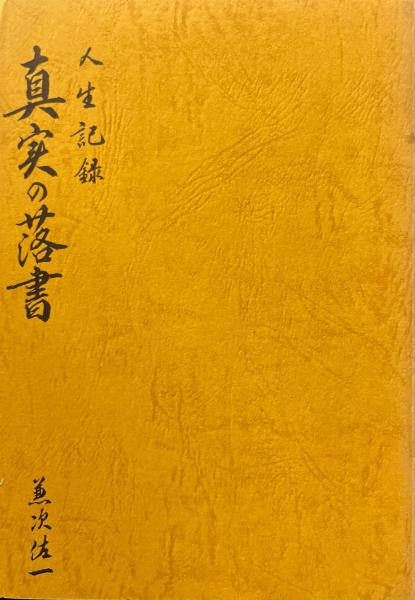 人生記録
真実の落書
兼次佐一